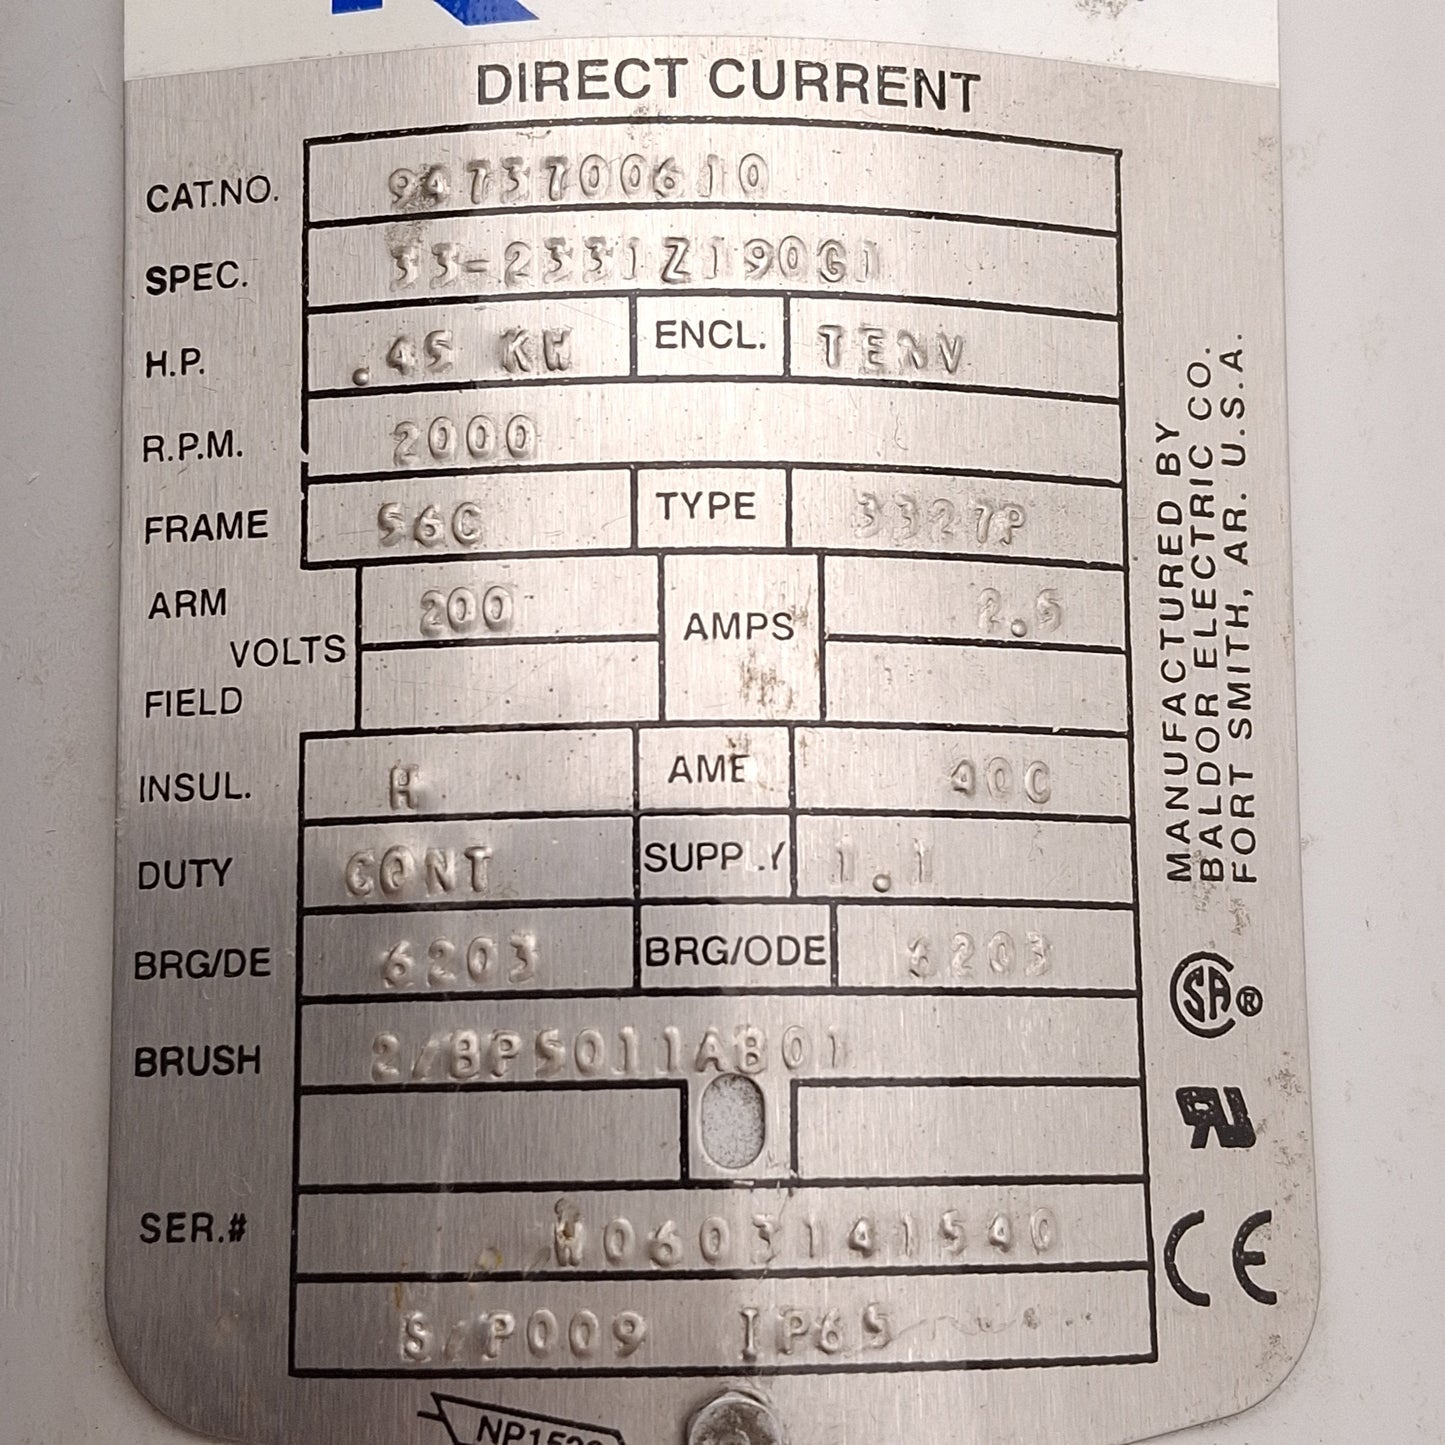 DIRECT CURRENT
CAT.NO. 9473700610
SPEC. 33-2331Z190G1
H.P. .45 KW ENCL. TENV
R.P.M. 2000
FRAME 56C TYPE 3327P
ARM 200 2.5
VOLTS AMPS
FIELD
INSUL. H AME 40C
DUTY CONT SUPPLY 1.1
BRG/DE 6203 BRG/ODE 6203
BRUSH 2/BP5011AB01
SER.# W0603141540
S/P009 IP65
MANUFACTURED BY
BALDOR ELECTRIC CO.
FORT SMITH, AR. U.S.A.
SA ®
RU
CE